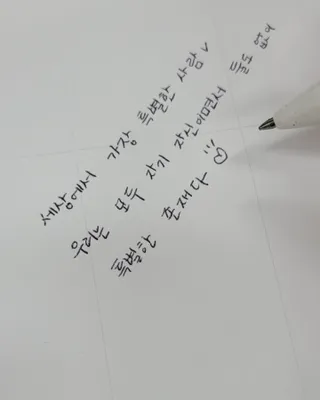 세상에서 가장 특별한 사람
우리는 모두 자기 자신이면서 둘도 없이
특별한 존재다